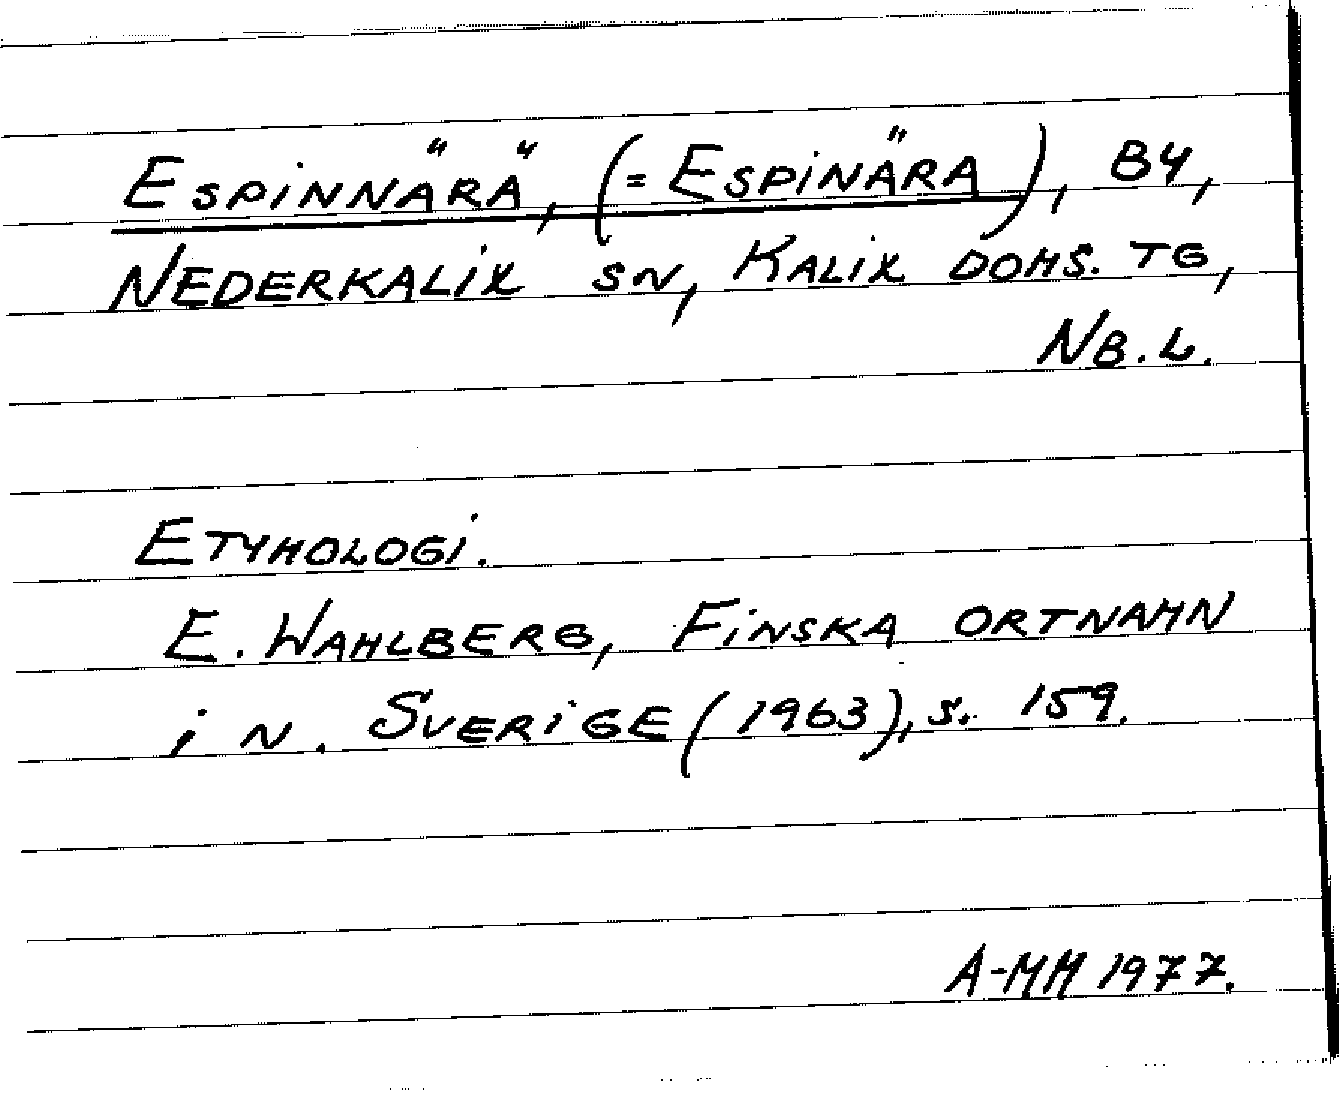 ESPINNÄRÄ, (= ESPINÄRA), BY,
NEDERKALIX SN, KALIX DOMS. TG,
NB.L.
ETYMOLOGI.
E. WAHLBERG, FINSKA ORTNAMN
i N. SVERIGE (1963), s. 159.
A-MM 1977.